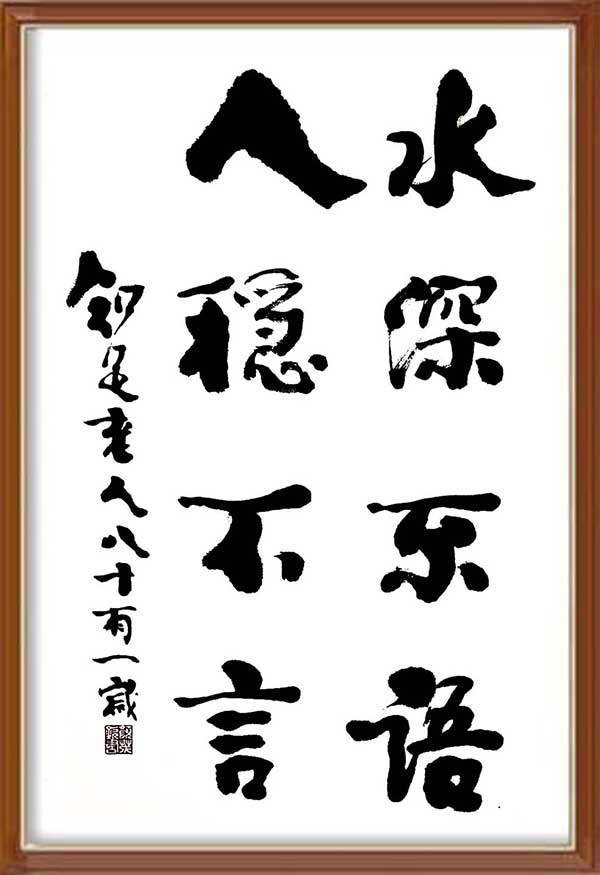 水深不语
人稳不言
知足老人八十有一岁